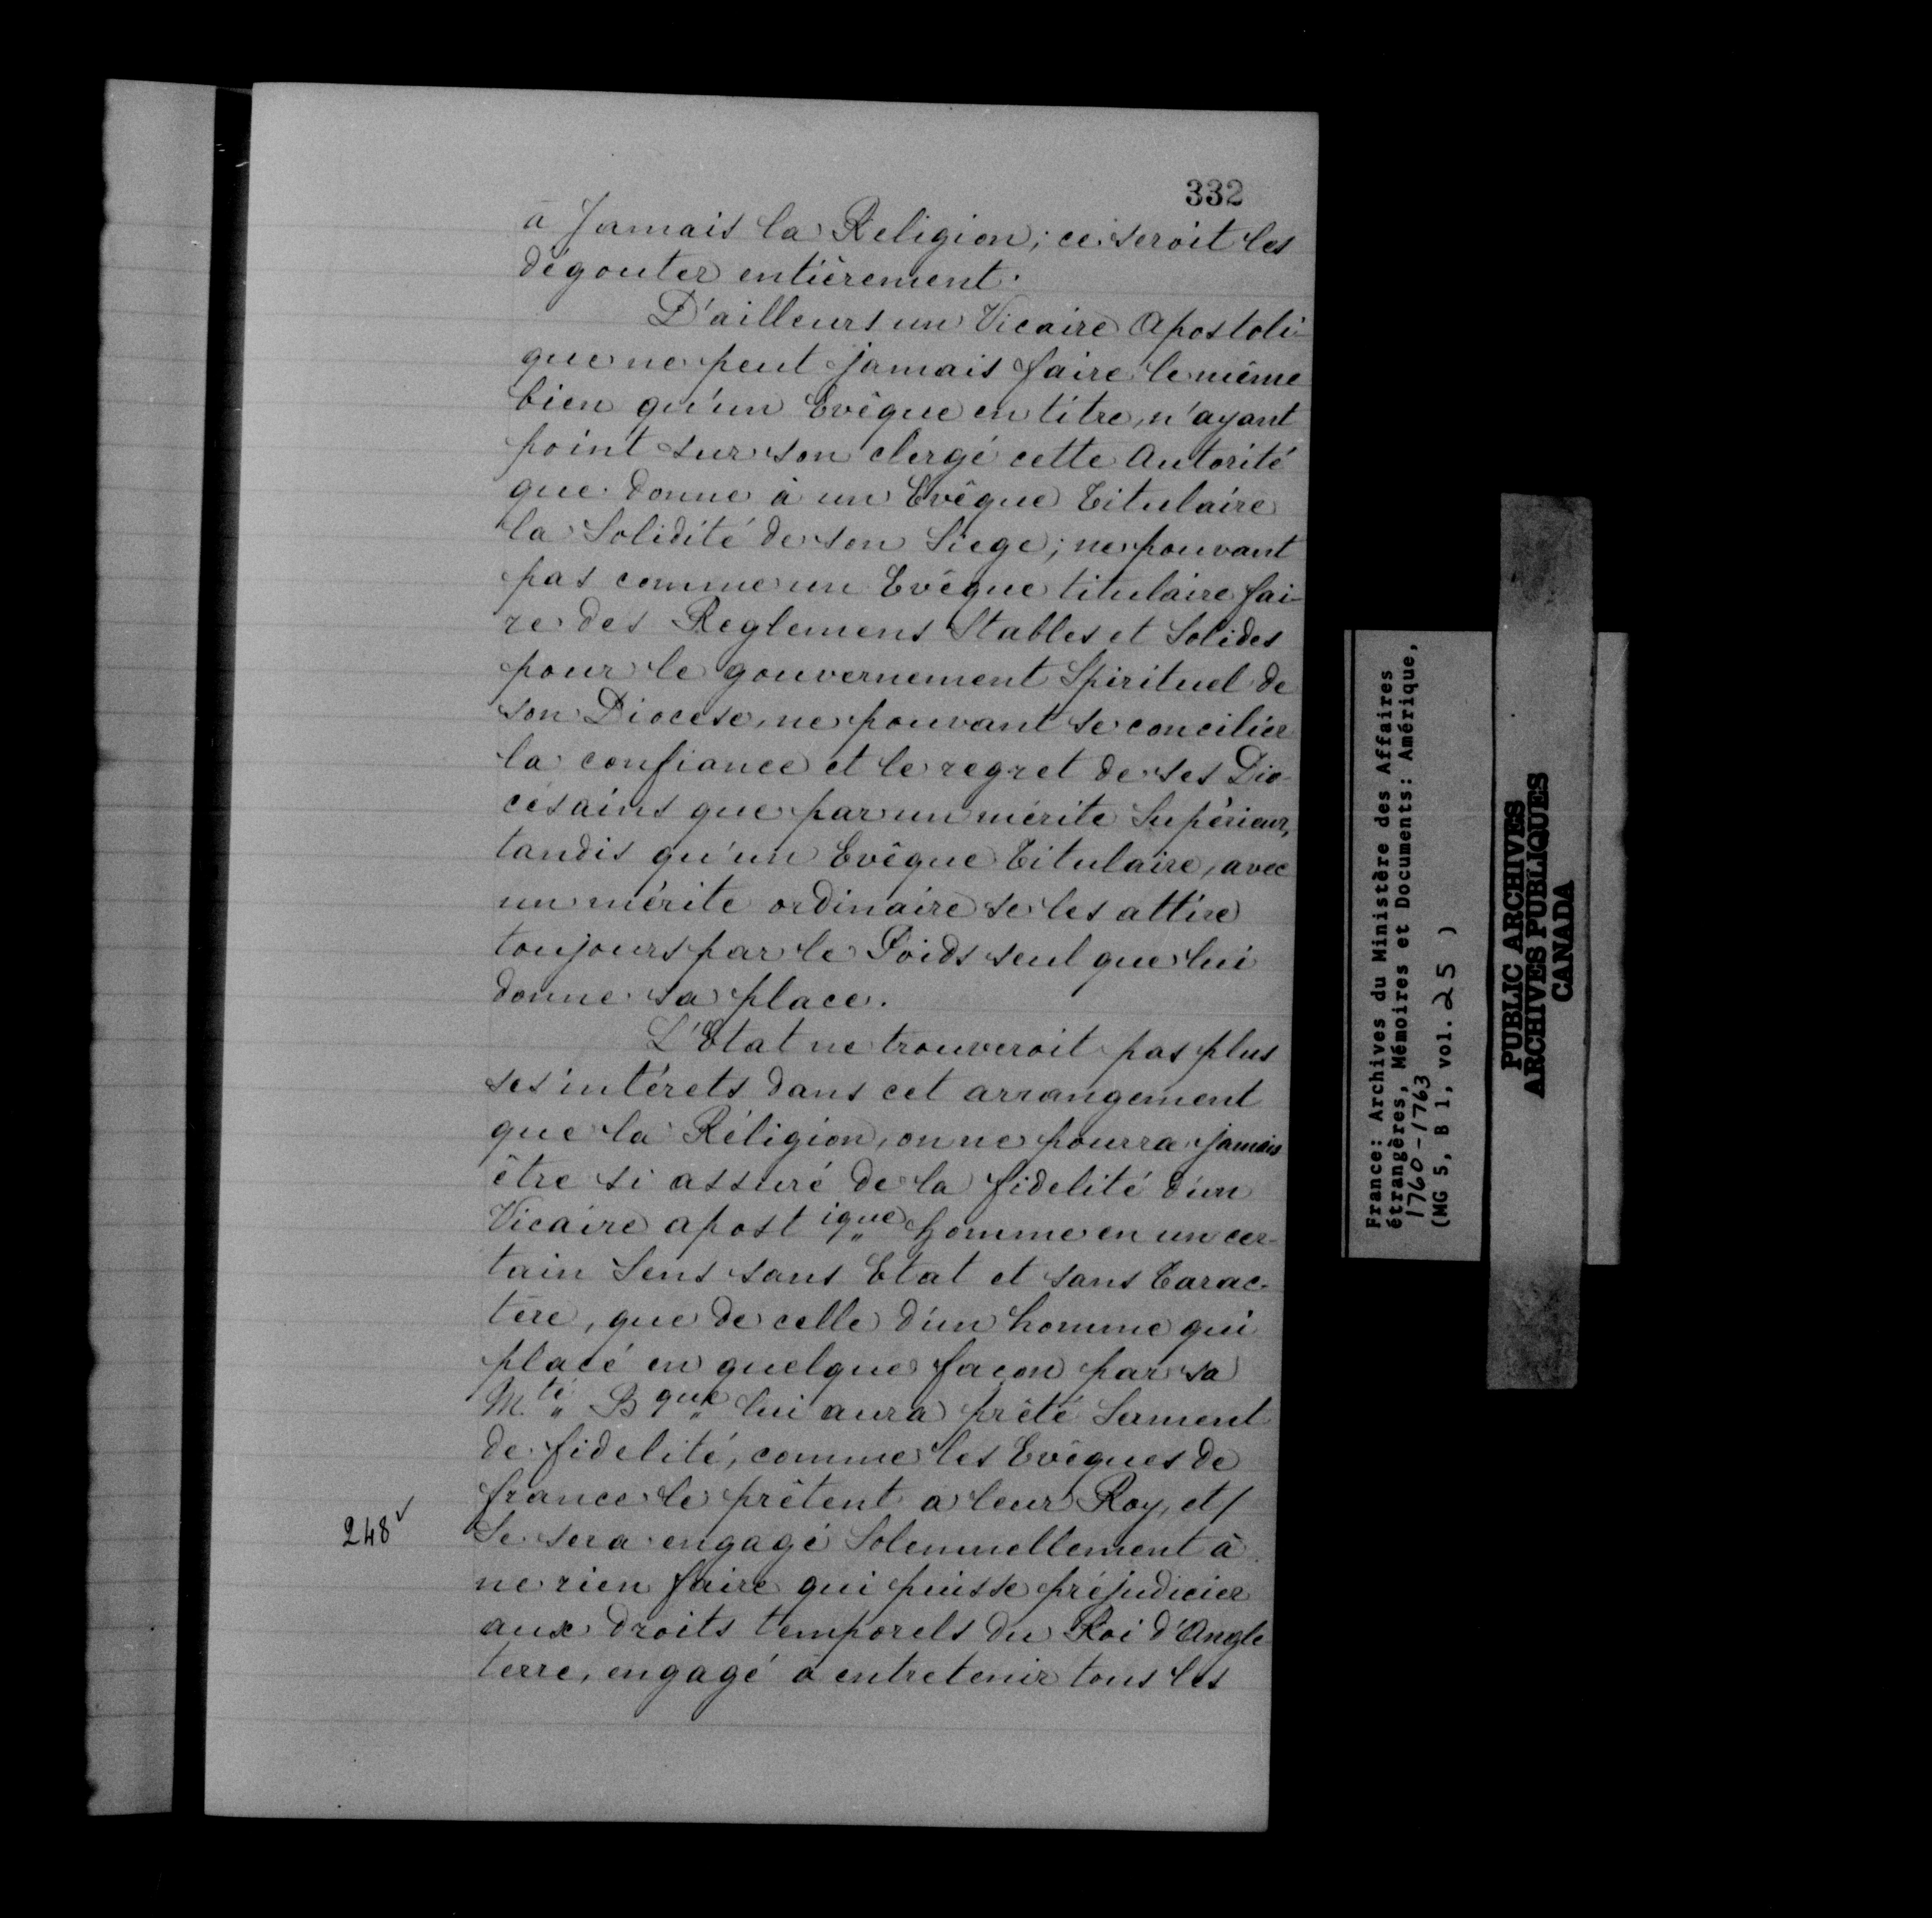 332
à Jamais la Religion; ce seroit les
dégouter entièrement.
D'ailleurs un Vicaire Apostoli-
que ne peut jamais faire le même
bien qu'un Evêque en titre, n'ayant
point sur son clergé cette Autorité
que donne à un Evêque Titulaire
la Solidité de son Siege; ne pouvant
pas comme un Evêque titulaire fai-
re des Reglemens Stables et Solides
pour le gouvernement Spirituel de
son Diocese, ne pouvant se concilier
la confiance et le regret de ses Dio-
césains que par un mérite Supérieur,
tandis qu'un Evêque Titulaire, avec
un mérite ordinaire se les attire
toujours par le Poids seul que lui
donne sa place.
L'Etat ne trouveroit pas plus
ses intérets dans cet arrangement
que la Réligion, on ne pourra jamais
être si assuré de la fidelité d'un
Vicaire apostique homme en un cer-
tain Sens sans Etat et sans Carac-
tère, que de celle d'un homme qui
placé en quelque façon par sa
Mté Bque lui aura prêté Serment
de fidelité, comme les Evêques de
france le prêtent a leur Roy, et/
248v Se sera engagé Solennellement à
ne rien faire qui puisse préjudicier
aux droits temporels du Roi d'Angle
terre, engagé à entretenir tous les
France: Archives du Ministère des Affaires
étrangères, Mémoires et Documents: Amérique,
1760-1763
(MG 5, B 1, vol. 25 )
PUBLIC ARCHIVES
ARCHIVES PUBLIQUES
CANADA